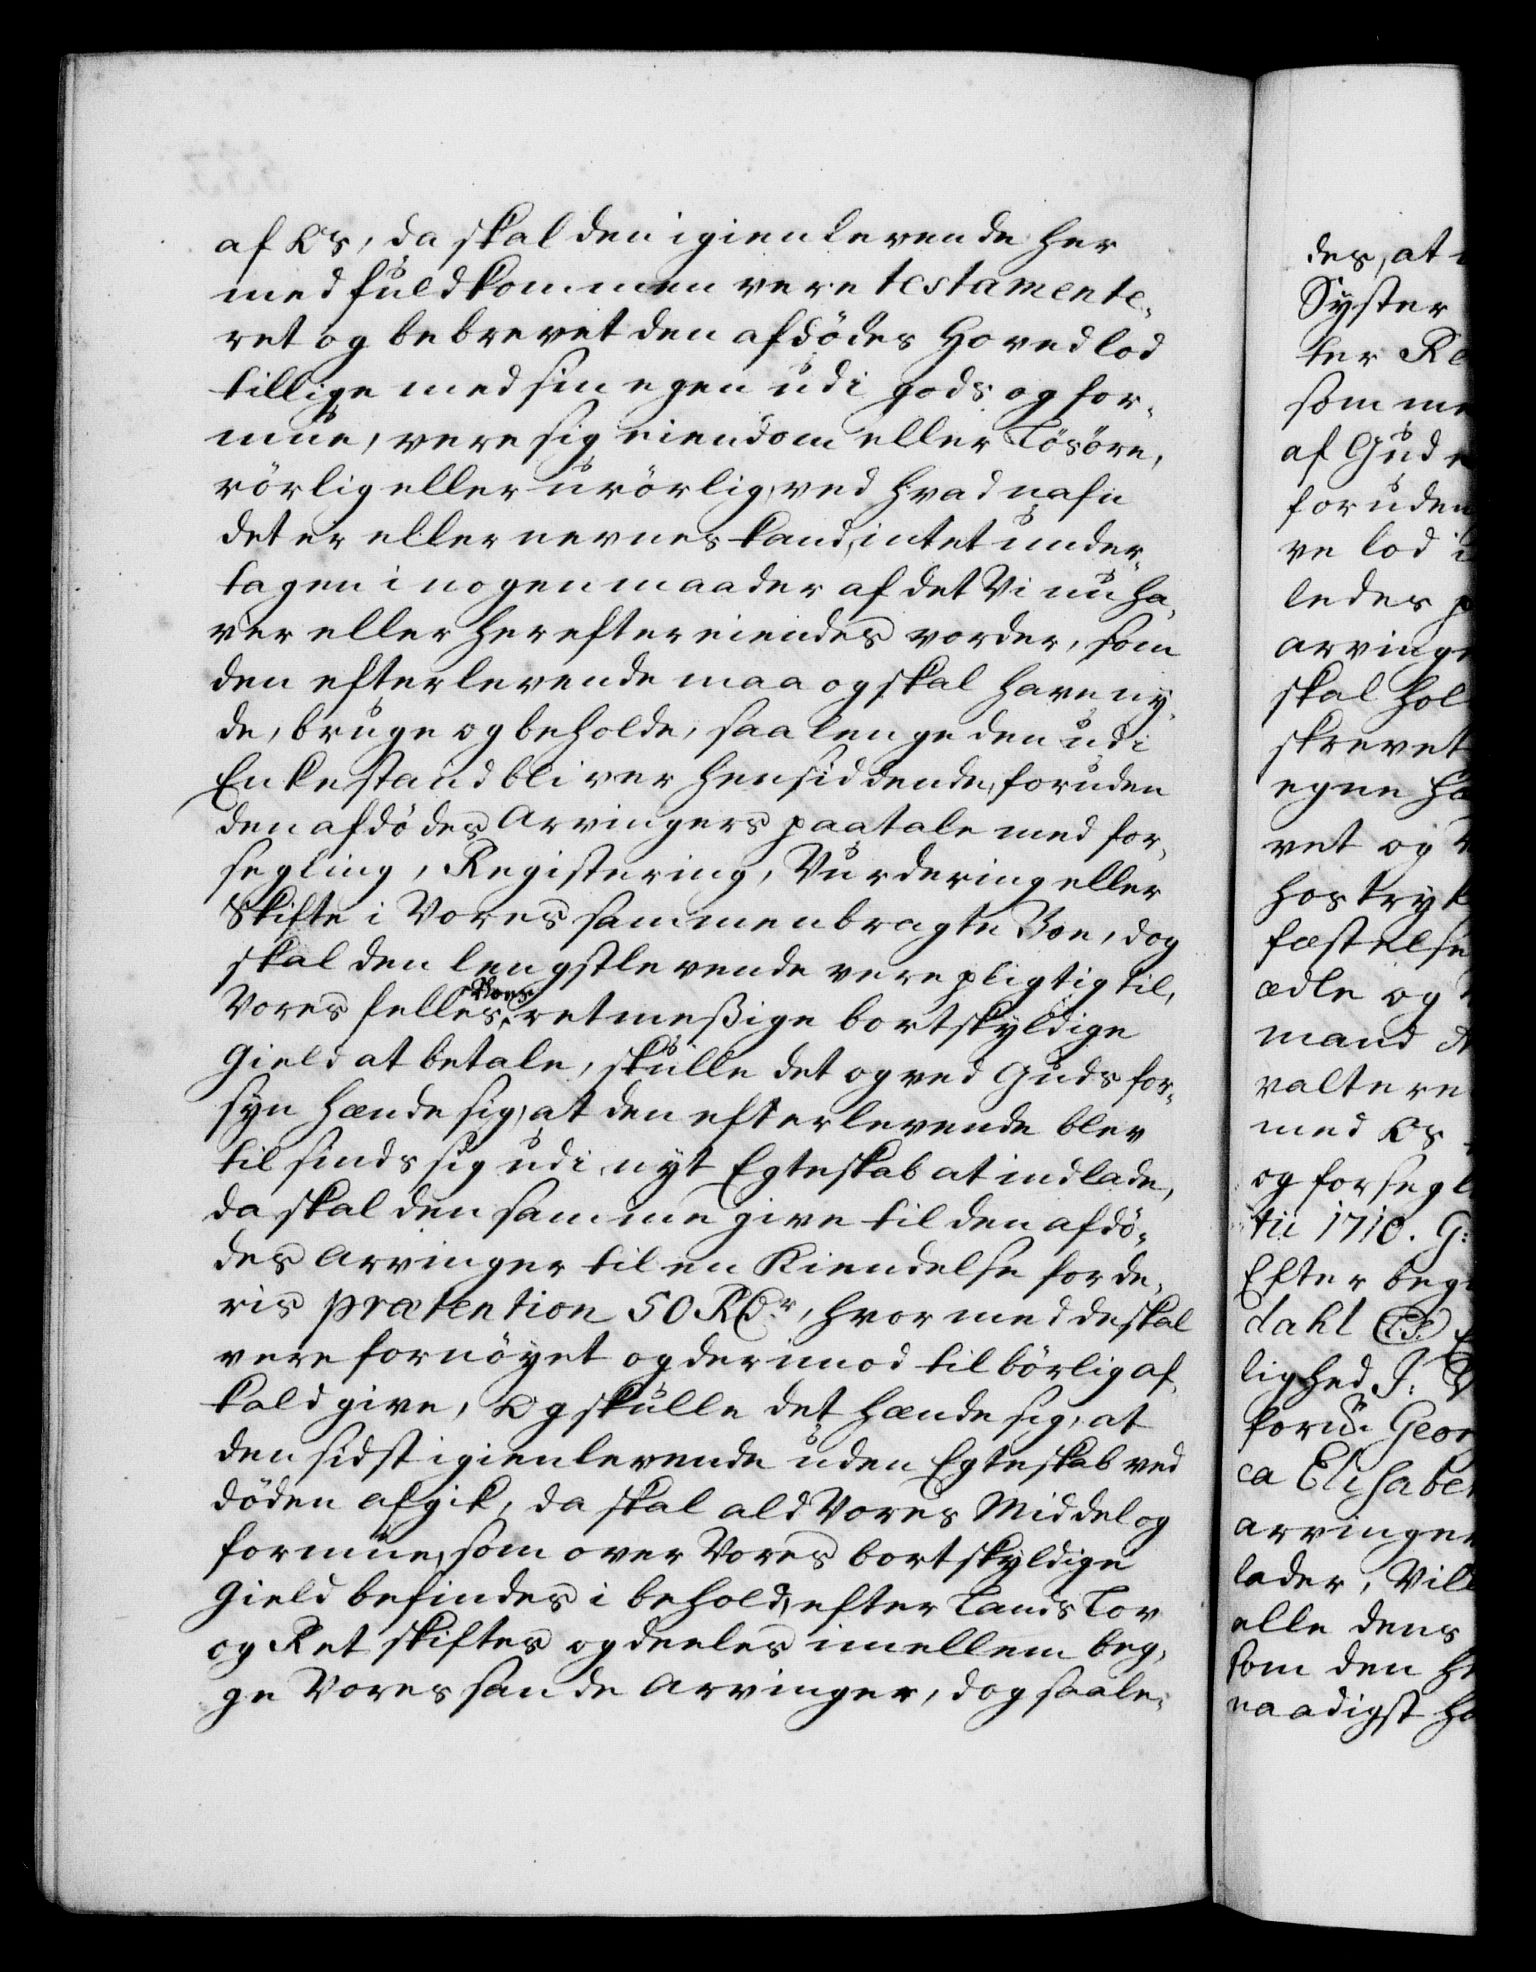 af Os, da skal den igienlevende her
med fuldkommen vere testamente-
ret og bebrevet den afdödes Hovedlod
tillige med sin egen udi gods og for-
mue, vere sig eiendom eller Lösöre,
rörlig eller urörlig, ved hvad nafn
det er eller nevnes kand, intet under-
tagen i nogen maader af det Vi nu ha-
ver eller herefter eiendes vorder, som
den efterlevende maa og skal have ny-
de, bruge og beholde, saa lenge den udi
Enkestand bliver hensiddende, foruden
den afdödes Arvingers paatale med for-
segling, Registering, Vurdering eller
Skifte i Vores sammenbragte Boe, dog
skal den lengstlevende vere pligtig til,
Vores felles Boes retmeßige bortskyldige
Gield at betale, skulle det og ved Guds for-
syn hænde sig, at den efterlevende blev
til sinds sig udi nyt Egteskab at indlade,
da skal den samme give til den afdö-
des Arvinger til en Kiendelse for de-
ris prætention 50 Rdr, hvor med de skal
vere fornöyet og dermod tilbörlig af-
kald give, Og skulle det hænde sig, at
den sidst igienlevende uden Egteskab ved
döden afgik, da skal ald Vores Middel og
formue, som over Vores bortskyldige
Gield befindes i behold, efter Lands Lov
og Ret skiftes og deeles imellem beg-
ge Vores sande Arvinger, dog saale-
des, at
Syster
ter
som
af Gud
foruden
ve lod
ledes
arvinge
skal hol
skrevet
egne
vet og
hostryk
fæstelse
ædle og
mand
valtere
med Os
og forsegl
tii 1710. G:
Efter beg
dahl
lighed J:
forue Geor
ca Elisabet
arvinger
lader, Vill
alle dens
som den
naadigst